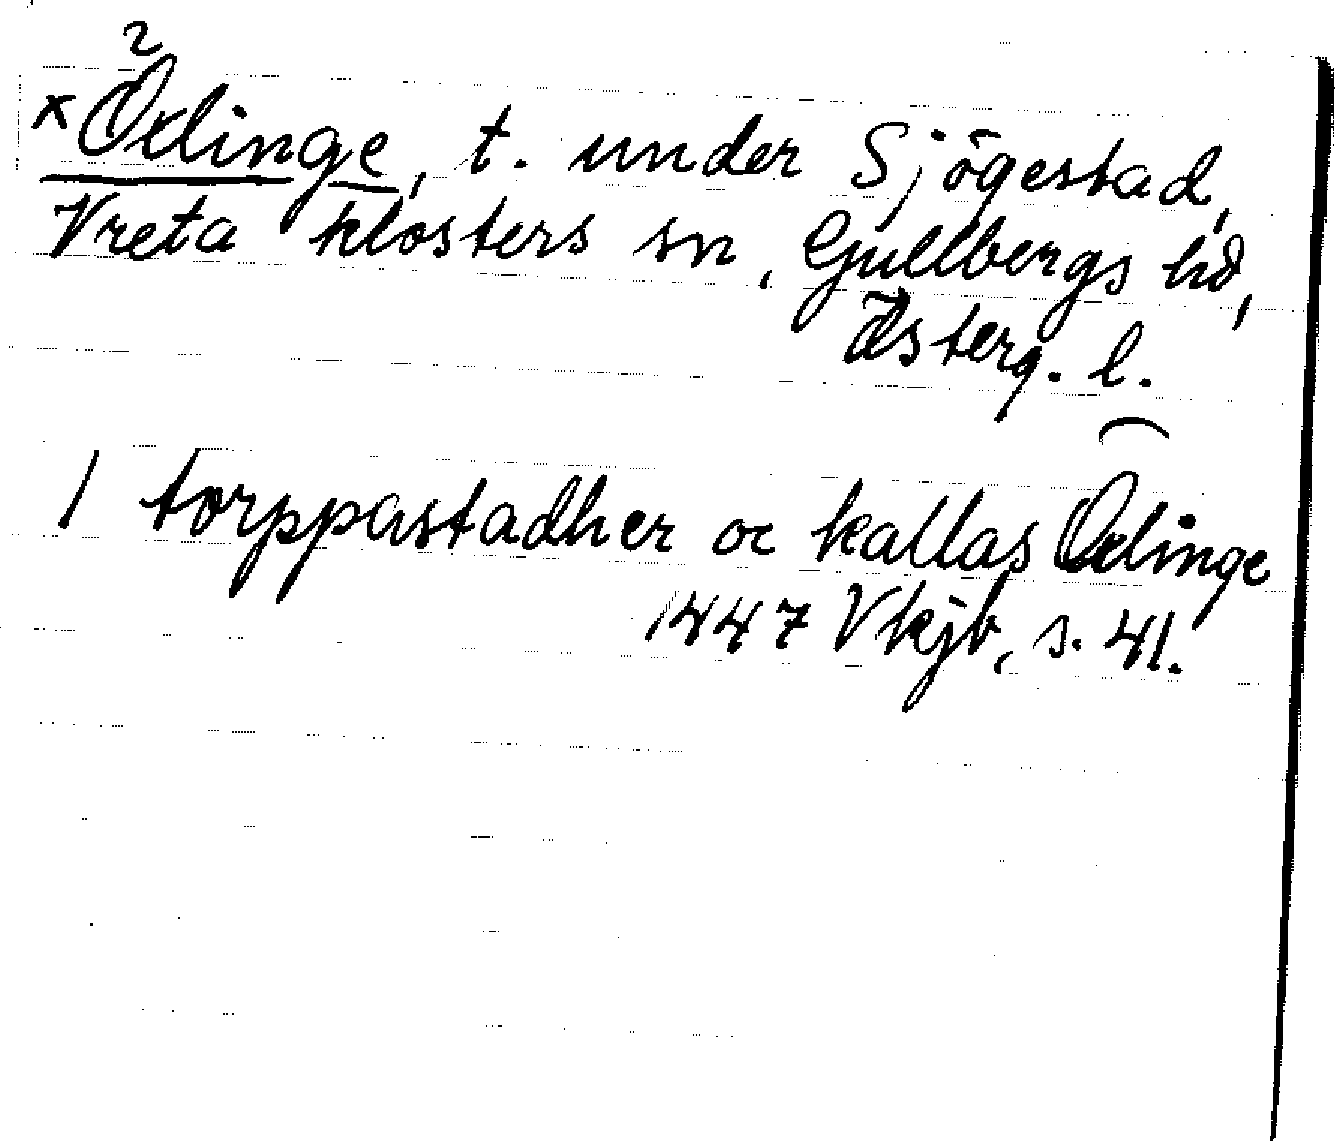 2
x Ödinge, t. under Sjögestad,
Vreta klosters sn, Gullbergs hd,
Österg. l.
1 torppastadher oc kallas Ødinge
1447 Vkjb, s. 41.